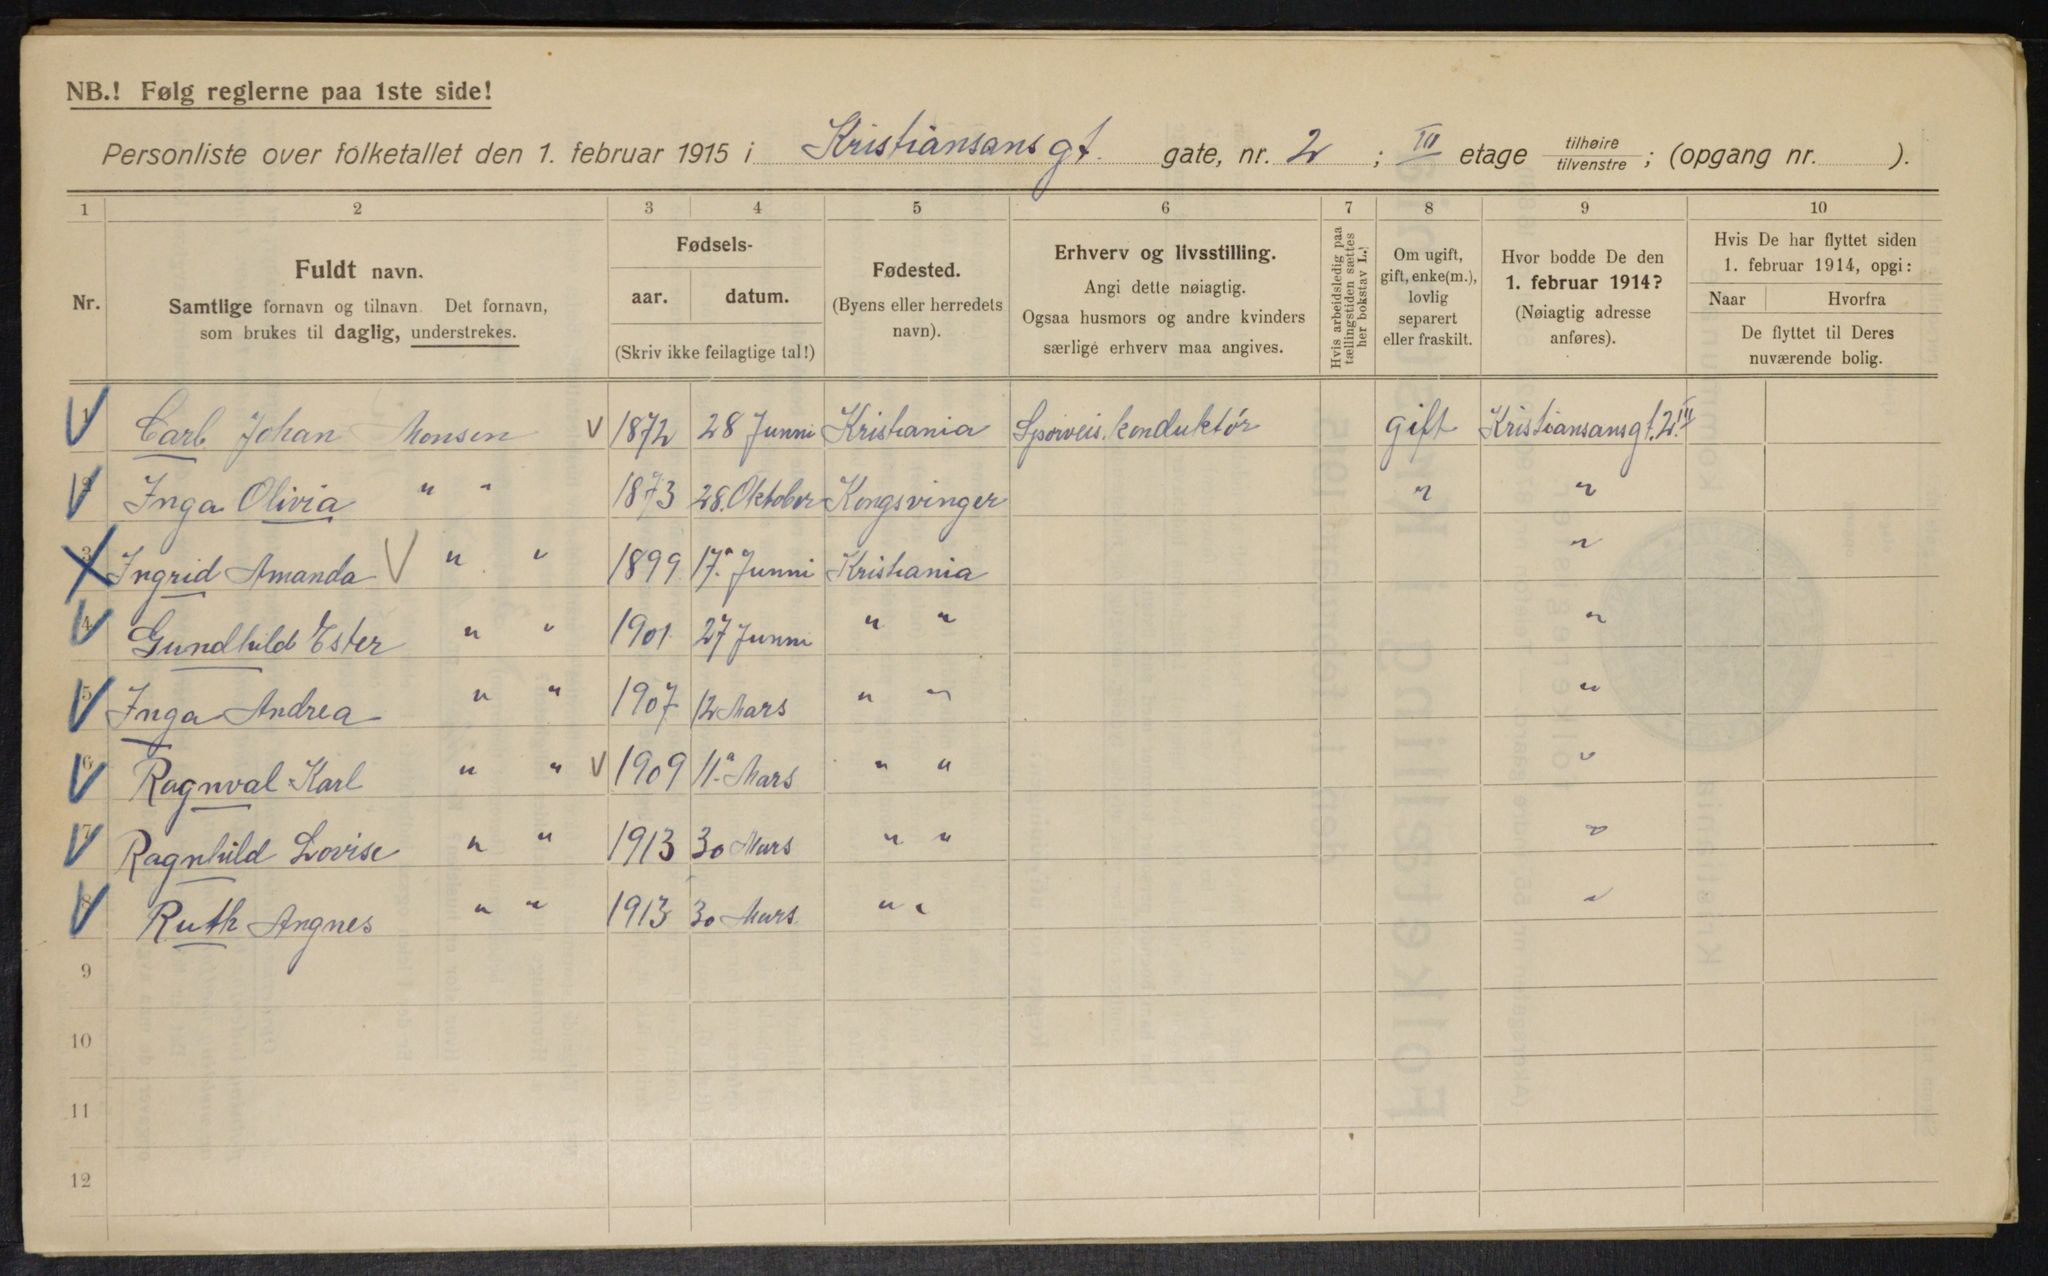 NB.! Følg reglerne paa 1ste side!
Personliste over folketallet den 1. februar 1915 i Kristiansansgt. gate, nr. 2 ; III etage tilhøire tilvenstre ; (opgang nr. ).
1 2 3 4 5 6 7 8 9 10
Nr.
Fuldt navn.
Samtlige fornavn og tilnavn. Det fornavn,
som brukes til daglig, understrekes.
Fødsels-
aar. datum.
(Skriv ikke feilagtige tal!)
Fødested.
(Byens eller herredets
navn).
Erhverv og livsstilling.
Angi dette nøiagtig.
Ogsaa husmors og andre kvinders
særlige erhverv maa angives.
Hvis arbeidsledig paa
tællingstiden sættes
her bokstav L.!
Om ugift,
gift, enke(m.),
lovlig
separert
eller fraskilt.
Hvor bodde De den
1. februar 1914?
(Nøiagtig adresse
anføres).
Hvis De har flyttet siden
1. februar 1914, opgi:
Naar Hvorfra
De flyttet til Deres
nuværende bolig.
1 Carl Johan Monsen 1872 28 Junni Kristiania Sporveis.konduktör gift Kristiansansgt. 2 III
2 Inga Olivia " " 1873 28. Oktober Kongsvinger " "
3 Ingrid Amanda " " 1899 17. Junni Kristiania "
4 Gundhild Ester " " 1901 27 Junni " " "
5 Inga Andrea " " 1907 12 Mars " " "
6 Ragnval Karl " " 1909 11. Mars " " "
7 Ragnhild Lovise " " 1913 30 Mars " " "
8 Ruth Angnes " " 1913 30 Mars " " "
9
10
11
12